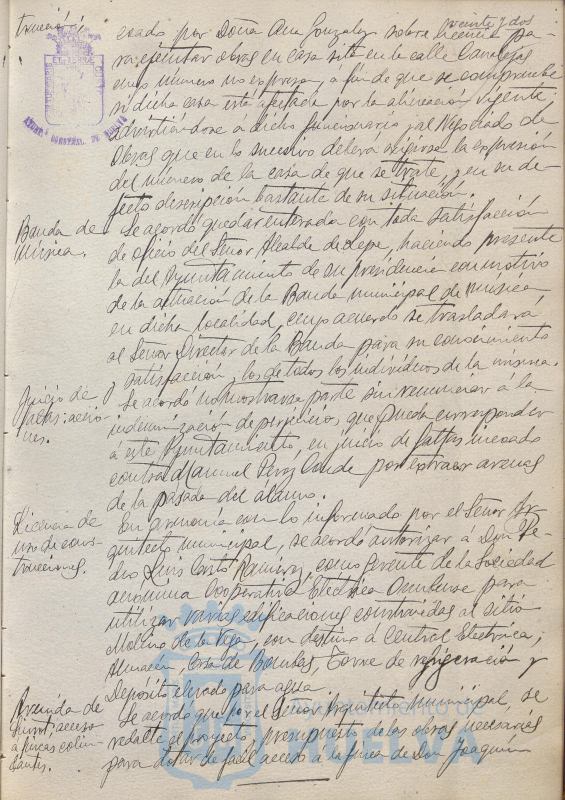 veinte y dos
trucción.
coado por Doña Ana Gonzalez sobre licencia pa-
ra ejecutar obras en casa sita en la calle Canalejas
cuyo número no expresa, a fin de que se compruebe
si dicha casa está afectada por la alineación vigente
advirtiéndose á dicho funcionario y al Negociado de
Obras que en lo sucesivo deberá exigirse la expresión
del número de la casa de que se trate, y en su de-
fecto descripción bastante de su situación.
Banda de
Música.
Se acordó quedar enterada con toda satisfacción
de oficio del Señor Alcalde de Lepe, haciendo presente
la del Ayuntamiento de su presidencia con motivo
de la actuación de la Banda municipal de música
en dicha localidad, cuyo acuerdo se trasladará
al Señor Director de la Banda para su conocimiento
y satisfacción y los de todos los individuos de la misma.
Juicio de
faltas: accio-
nes.
Se acordó no mostrarse parte sin renunciar a la
indemnización de perjuicios que pueda corresponder
á este Ayuntamiento, en juicio de faltas incoado
contra Manuel Perez Conde por extraer arenas
de la pasada del álamo.
Licencia de
uso de cons-
trucciones.
En armonía con lo informado por el Señor Ar-
quitecto municipal, se acordó autorizar a Don Pe-
dro Luis Casto Ramirez, como gerente de la Sociedad
anónima Cooperativa Electrica Onubense para
utilizar varias edificaciones construidas al sitio
Molino de la Vega, con destino a Central Electrica,
Almacen, Casa de Bombas, Torre de refrigeración y
Depósito elevado para agua.
Avenida de
acceso
á fincas colin-
dantes.
Se acordó que por el Señor Arquitecto municipal, se
redacte el proyecto y presupuesto de las obras necesarias
para dotar de fácil acceso a la finca de Don Joaquin
Ayuntamiento de
HUELVA